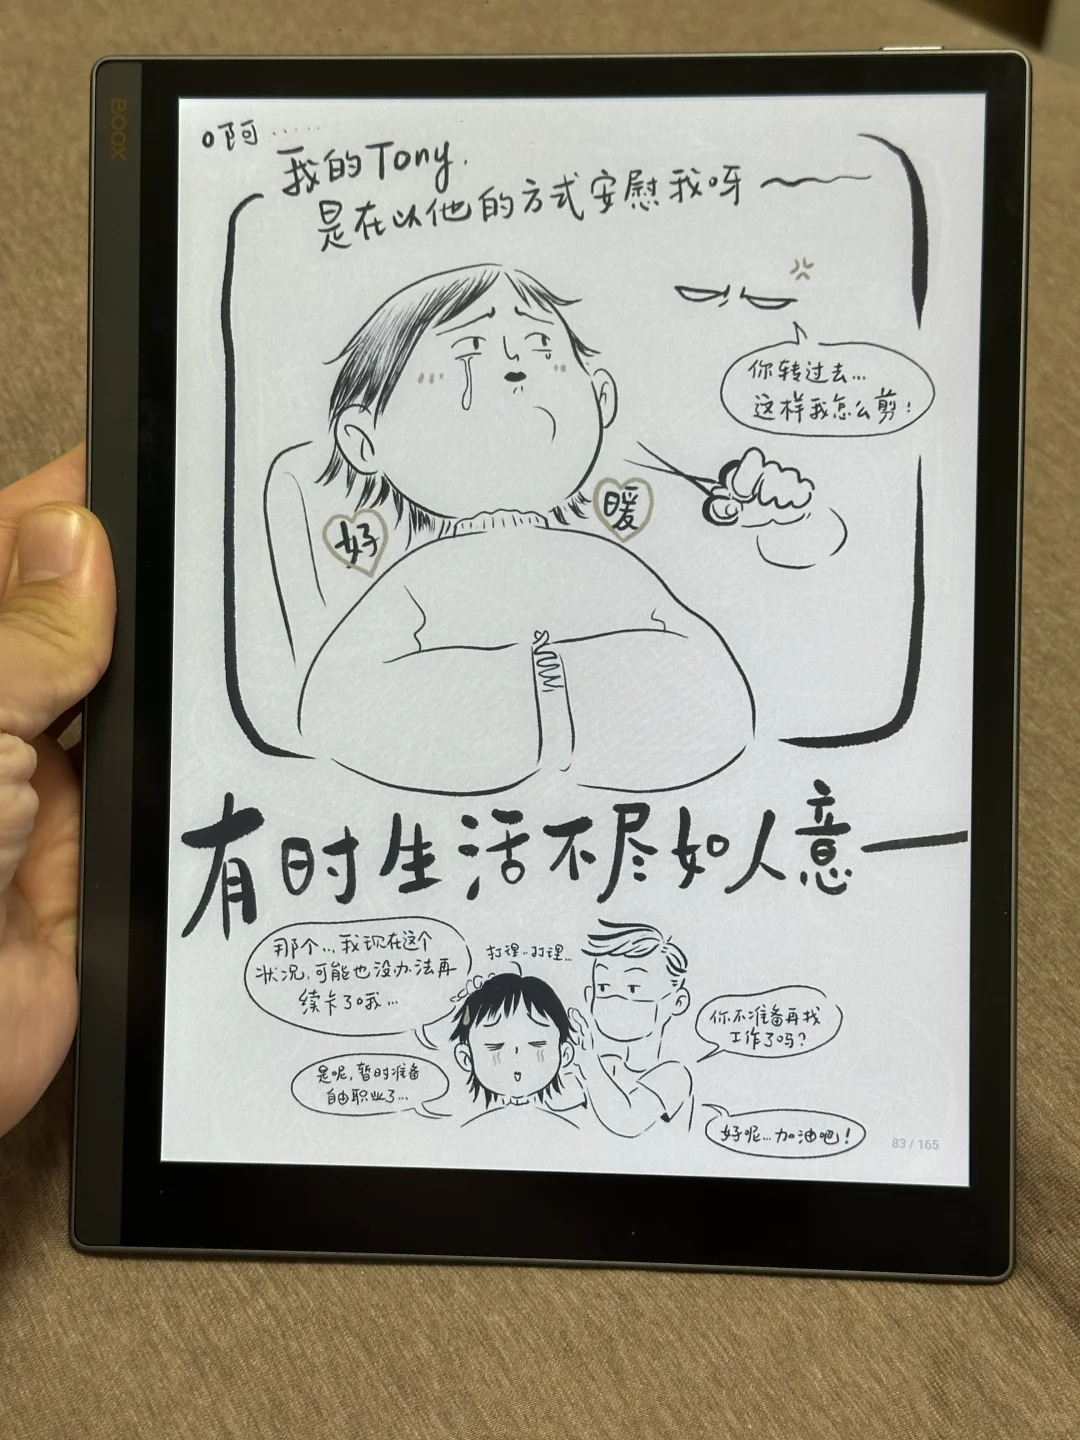 BOOX
啊……
我的Tony.
是在以他的方式安慰我呀～
你转过去…
这样我怎么剪!
好
暖
有时生活不尽如人意一
那个…我现在这个
状况,可能也没办法再
续卡了哦…
打理…打理…
你不准备再找
工作了吗?
是呢,暂时准备
自由职业了…
好呢…加油吧!
83 / 165